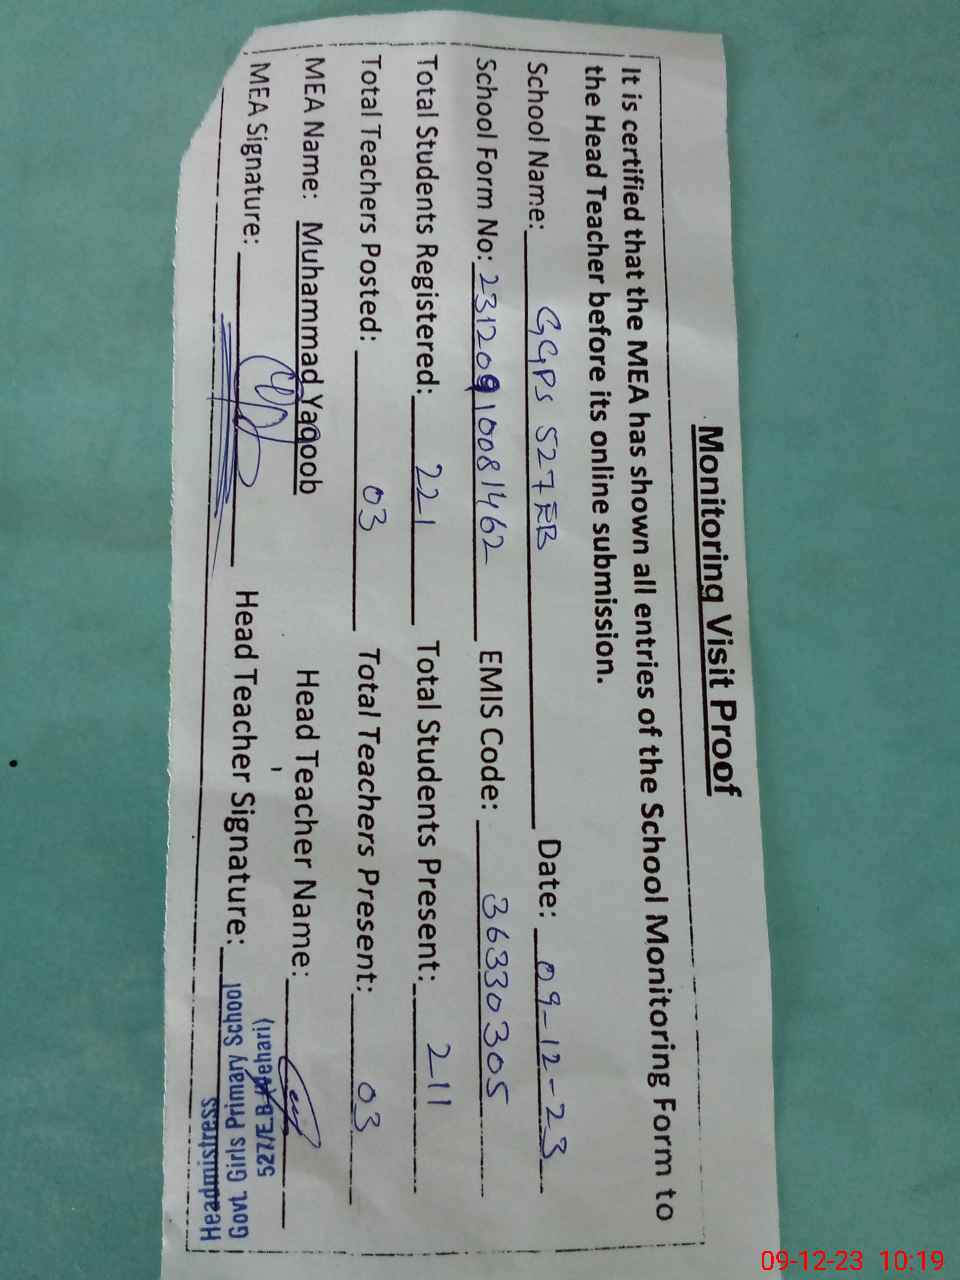 Monitoring Visit Proof
It is certified that the MEA has shown all entries of the School Monitoring Form to
the Head Teacher before its online submission.
School Name: GGPS 527 EB Date: 09-12-23
School Form No: 23120910081462 EMIS Code: 36330305
Total Students Registered: 221 Total Students Present: 211
Total Teachers Posted: 03 Total Teachers Present: 03
MEA Name: Muhammad Yaqoob Head Teacher Name:
MEA Signature: Head Teacher Signature:
Headmistress
Govt. Girls Primary School
527/E.B (Vehari)
09-12-23 10:19